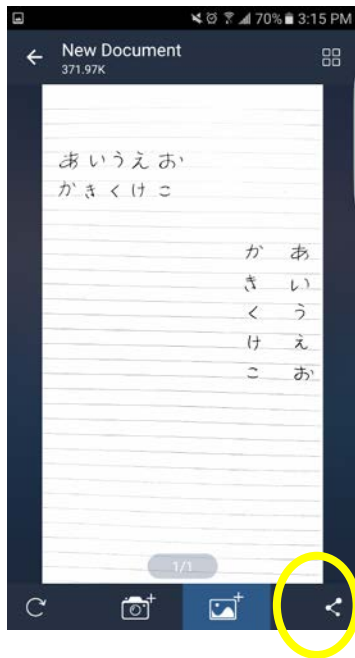 3:15 PM
70%
New Document
371.97K
あいうえお
かきくけこ
あいうえお
かきくけこ
1/1